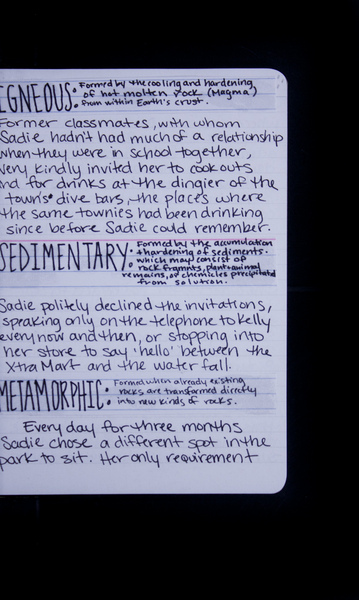 IGNEOUS: Formed by the cooling and hardening
of hot molten rock (Magma)
from within Earth's crust.
Former classmates, with whom
Sadie hadn't had much of a relationship
when they were in school together,
very kindly invited her to cookouts
nd for drinks at the dingier of the
town's dive bars, the places where
the same townies had been drinking
since before Sadie could remember.
SEDIMENTARY: Formed by the accumulation
+ hardening of sediments.
which may consist of
rock framnts, plant+animal
remains, or chemicles precipitated
from solution.
Sadie politely declined the invitations,
speaking only on the telephone to Kelly
every now and then, or stopping into
her store to say 'hello' between the
Xtra Mart and the water fall.
METAMORPHIC: Formed when already existing
rocks are transformed directly
into new kinds of rocks.
Every day for three months
Sadie chose a different spot in the
park to sit. Her only requirement